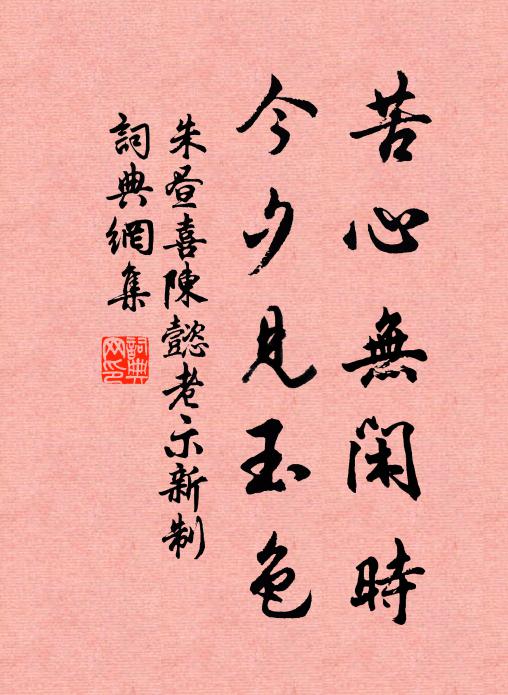 苦心無閑時
今夕見玉色
朱晝喜陳懿老示新制
詞典網集
詞典
网印